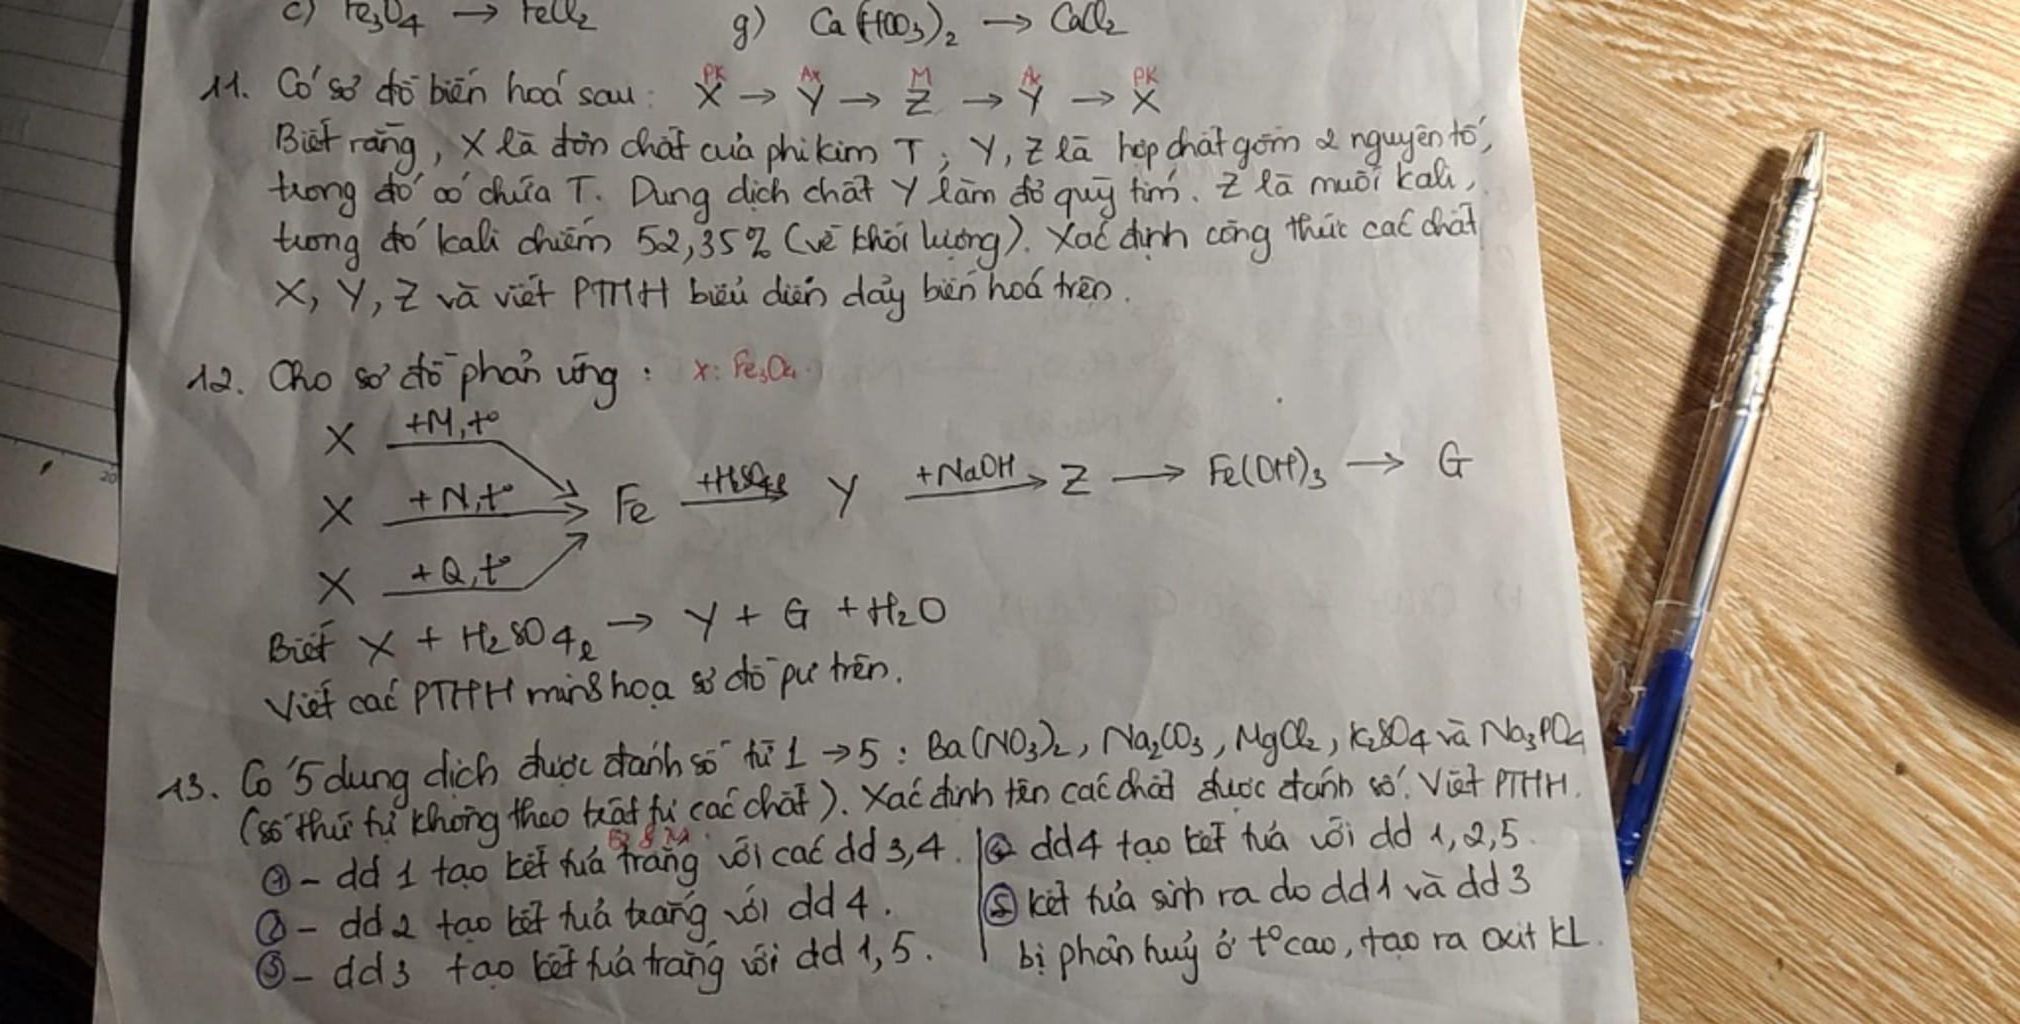 c) Fe3O4 → FeCl2 g) Ca(HCO3)2 → CaCl2
11. Có sơ đồ biến hoá sau: X → Y → Z → Y → X
PK Ax M Ax PK
Biết rằng, X là đơn chất của phi kim T; Y, Z là hợp chất gồm 2 nguyên tố,
trong đó có chứa T. Dung dịch chất Y làm đỏ quỳ tím. Z là muối kali,
trong đó kali chiếm 52,35% (về khối lượng). Xác định công thức các chất
X, Y, Z và viết PTHH biểu diễn dãy biến hoá trên.
12. Cho sơ đồ phản ứng: X: Fe3O4
X +M, t°
X +N, t° Fe +H2SO4l Y +NaOH Z → Fe(OH)3 → G
X +Q, t°
Biết X + H2SO4l → Y + G + H2O
Viết các PTHH minh hoạ sơ đồ pư trên.
13. Có 5 dung dịch được đánh số từ 1 → 5: Ba(NO3)2, Na2CO3, MgCl2, K2SO4 và Na3PO4
(số thứ tự không theo trật tự các chất). Xác định tên các chất được đánh số. Viết PTHH.
① - dd 1 tạo kết tủa trắng với các dd 3,4.
② - dd 2 tạo kết tủa trắng với dd 4.
③ - dd 3 tạo kết tủa trắng với dd 1,5.
④ dd4 tạo kết tủa với dd 1,2,5.
⑤ kết tủa sinh ra do dd1 và dd 3
bị phân huỷ ở t° cao, tạo ra oxit KL.